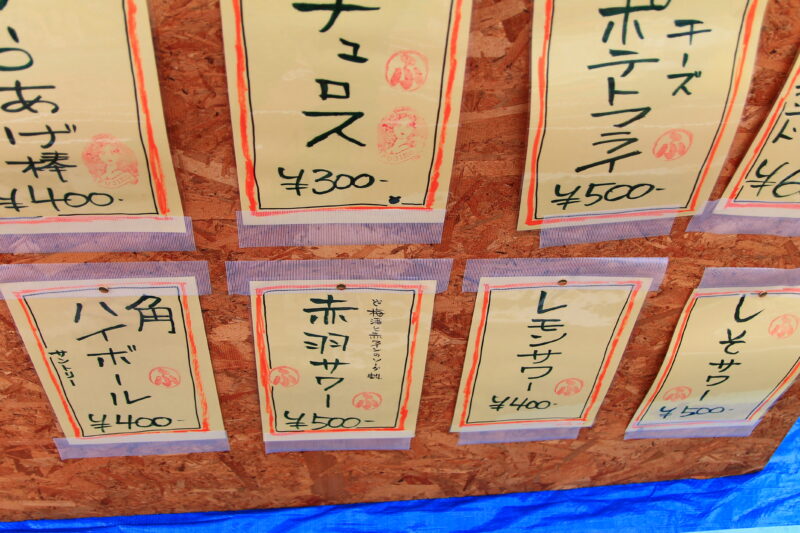 らあげ棒
¥400-
チュロス
¥300-
チーズ
ポテトフライ
¥500-
角
ハイボール
サントリー
¥400-
赤羽サワー
¥500-
レモンサワー
¥400-
しそサワー
¥500-